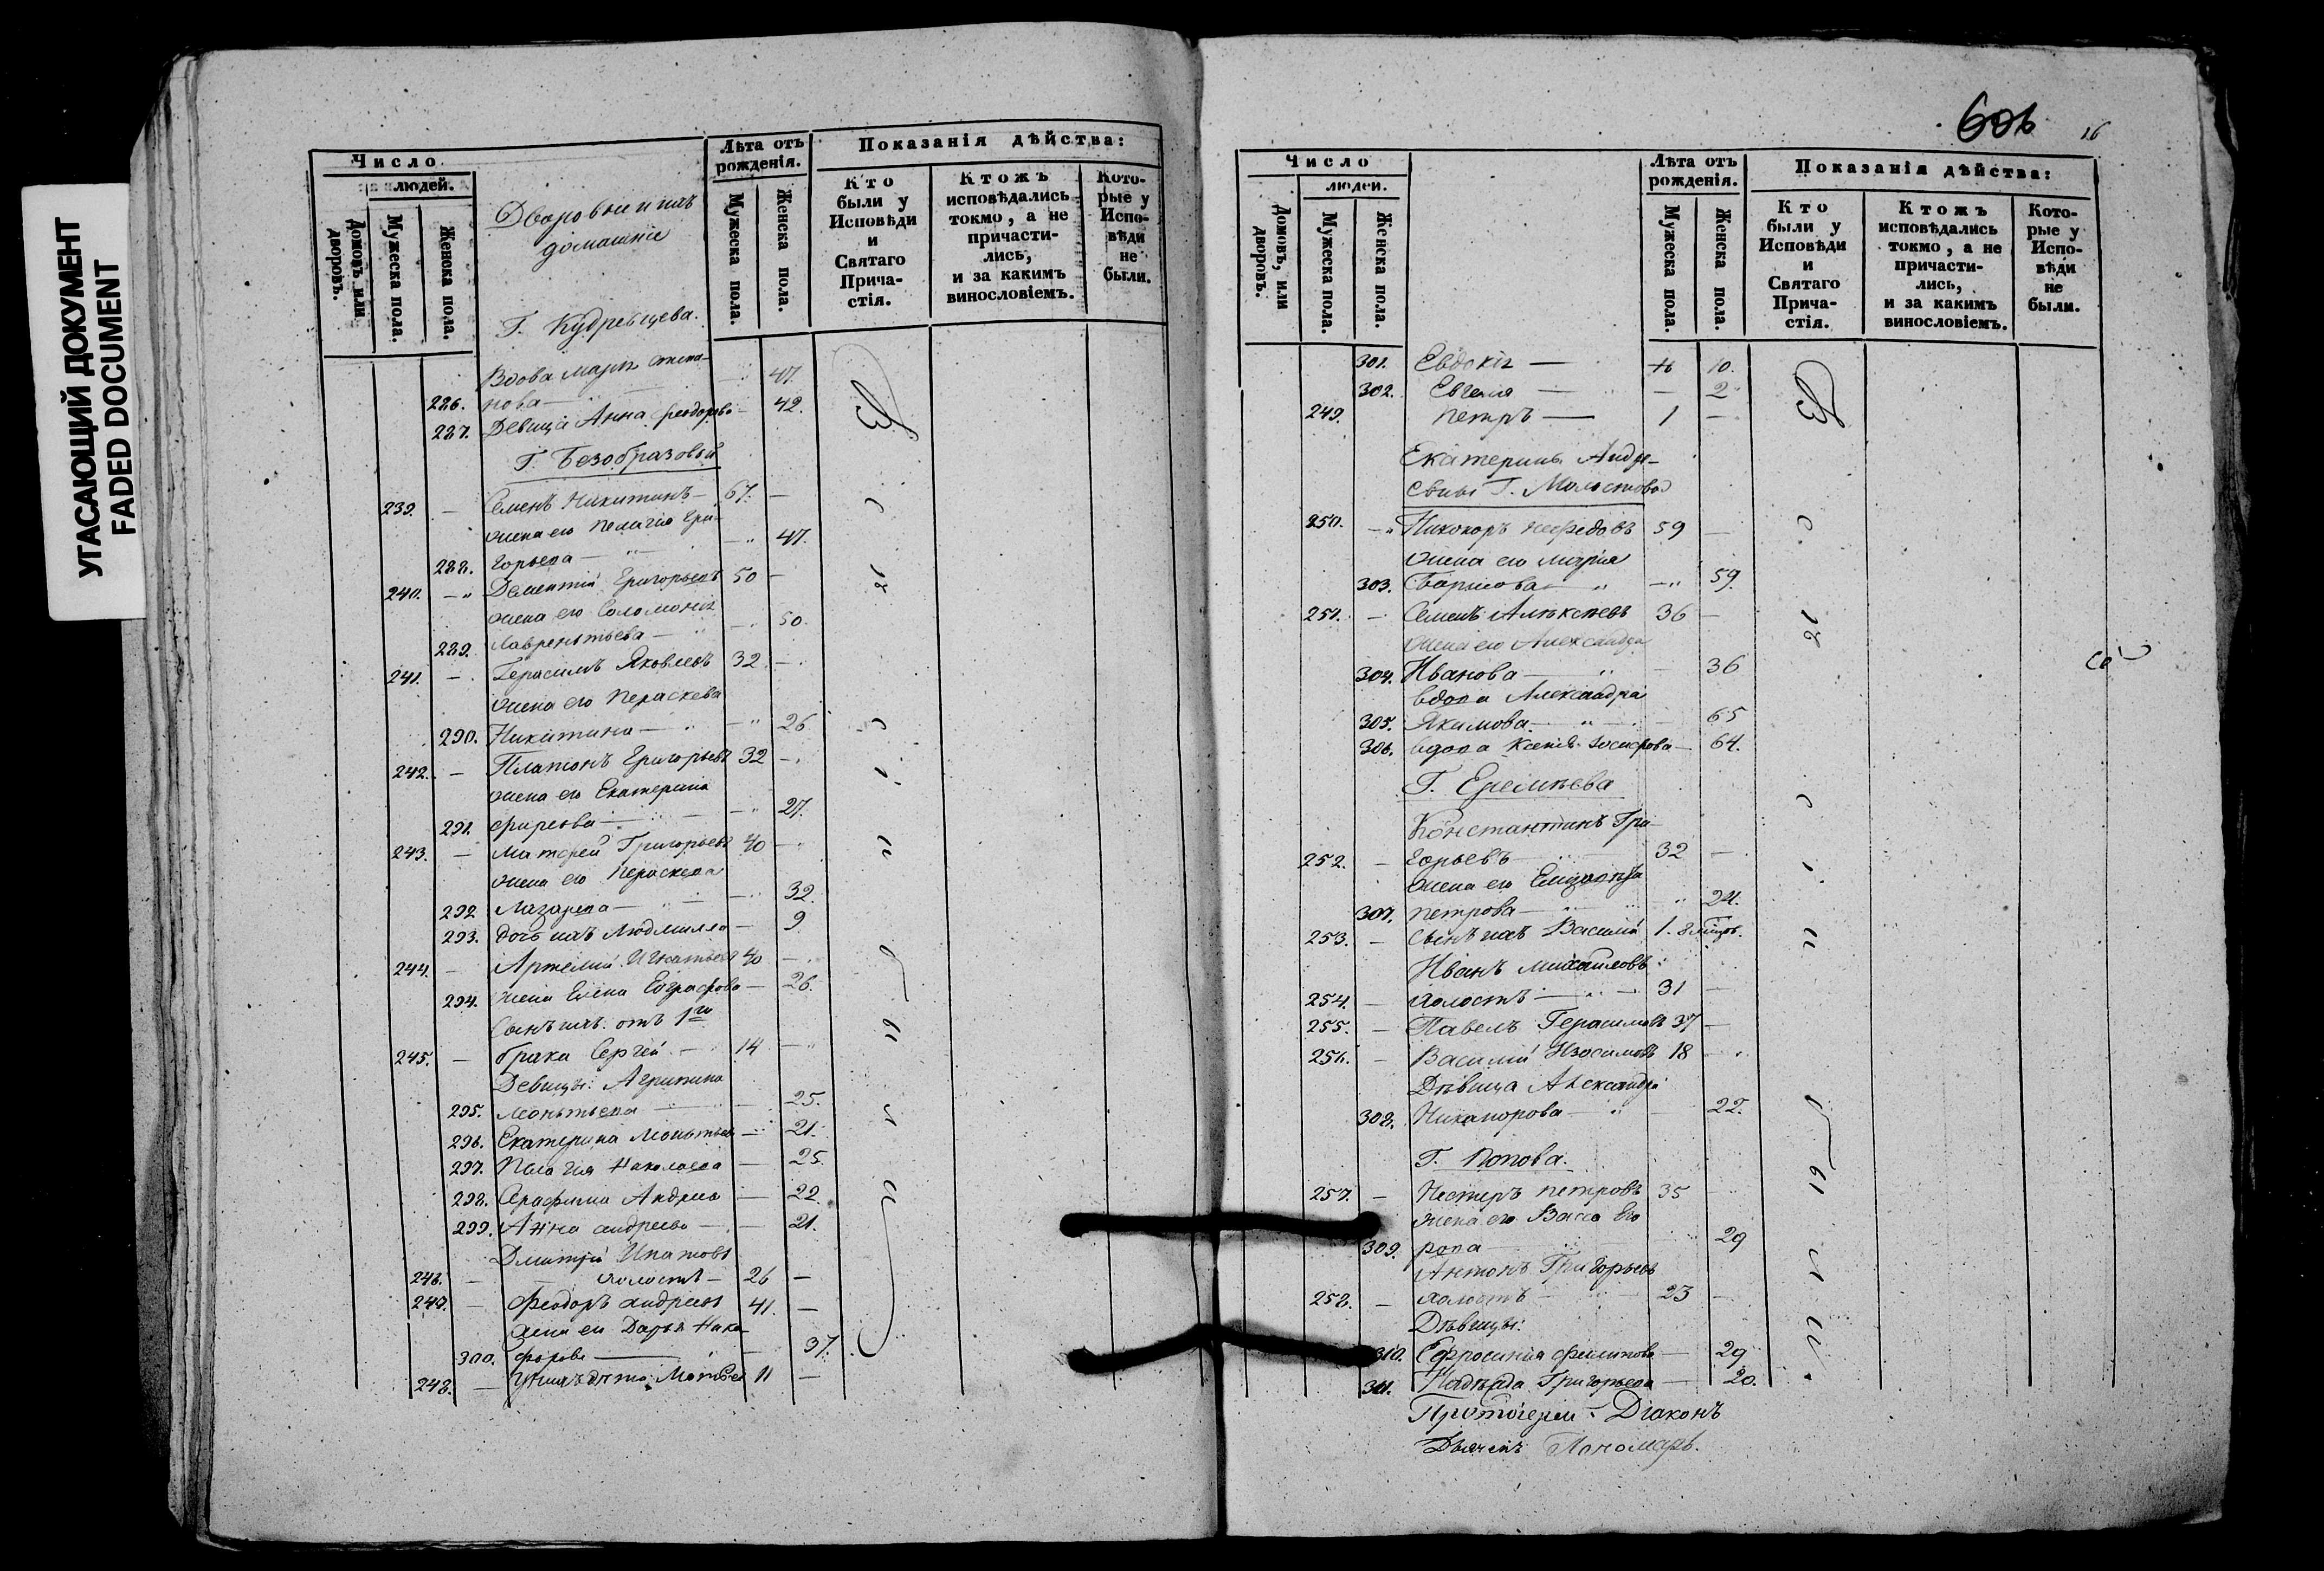 УГАСАЮЩИЙ ДОКУМЕНТ
FADED DOCUMENT
Число
людей.
Домовъ или дворовъ.
Мужеска пола.
Женска пола.
Дворовыи и ихъ
домашніе
Г. Кудрявцева.
Лѣта отъ рожденія.
Мужеска пола.
Женска пола.
Показанія дѣйства:
Кто были у Исповѣди и Святаго Причастія.
Ктожъ исповѣдались токмо, а не причастились, и за какимъ винословіемъ.
Которые у Исповѣди не были.
Вдова Марѳа Степа-
286. нова — 47.
287. Девица Анна Феодоро — 42.
Г. Безобразовой
239. — Семенъ Никитинъ — 67. —
жена его Пелагія Гри-
288. горьева — 47.
240. — Дементій Григорьевъ 50 —
жена его Соломонія
289. Лаврентьева — 50.
241. — Герасимъ Яковлевъ 32 —
жена его Параскева
290. Никитина — 26
242. — Платонъ Григорьевъ 32 —
жена его Екатерина
291. Фирсова — 27.
243. — Матфей Григорьевъ 40 —
жена его Параскева
292. Лазарева — 32.
293. Дочь ихъ Людмилла — 9
244. — Артемій Игнатьевъ 40 —
294. жена Елена Евграфова — 26.
Сынъ ихъ отъ 1го
245. — брака Сергей — 14 —
Девицы: Агрипина
295. Леонтьева — 25.
296. Екатерина Леонтьев — 21.
297. Пелагия Николаева — 25.
298. Серафима Андрее — 22.
299. Анна Андреева — 21.
Дмитрій Ипатовъ
246. — холостъ — 26 —
247. — Феодоръ Андреевъ 41. —
жена ея Дарья Ники-
300. форова — 37.
248. — У нихъ дети: Матвей 11 —
606 16
Число
людей.
Домовъ, или дворовъ.
Мужеска пола.
Женска пола.
Лѣта отъ рожденія.
Мужеска пола.
Женска пола.
Показанія дѣйства:
Кто были у Исповѣди и Святаго Причастія.
Ктожъ исповѣдались токмо, а не причастились, и за какимъ винословіемъ.
Которые у Исповѣди не были.
301. Евдокія — 10.
302. Евгенія — 2
249. Петръ — 1 —
Екатерины Андре-
евны Г. Молостово
250. — Никоноръ Нефедовъ 59 —
жена его Марія
303. — 59.
251. — Семенъ Алексѣевъ 36 —
жена его Александра
304. Иванова — 36
вдова Александра
305. Якимова — 65
306. вдова Ксенія Іосифова — 64.
Г. Еремѣева
Константинъ Гри-
252. — горьевъ 32 —
жена его Елизавета
307. Петрова — 24.
253. — Сынъ ихъ Василій 1.
Иванъ Михайловъ
254. — холостъ — 31 —
255. — Павелъ Герасимовъ 37 —
256. — Василій Изосимовъ 18
Дѣвица Александра
308. Никанорова — 22.
Г. Попова.
257. — Нестеръ Петровъ 35
жена его Васса Его
309. рова — 29
Антонъ Григорьевъ
258. — холостъ — 23 —
Дѣвицы:
310. Ефросинія Филипова — 29
311. Надежда Григорьева — 20.
Протоіерей Діаконъ
Дьячекъ Пономарь.